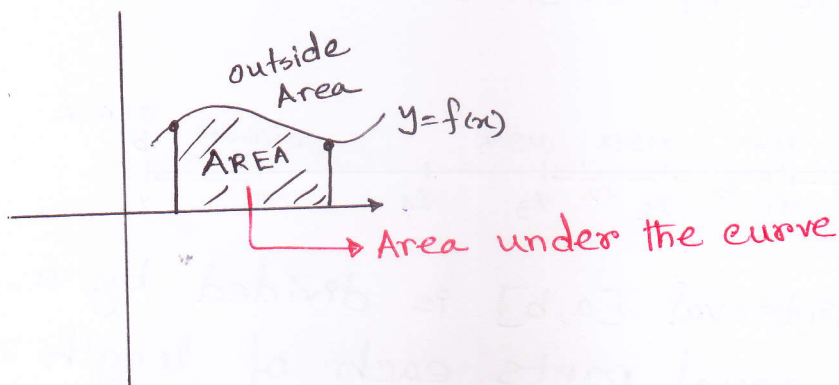 outside
Area
y=f(x)
AREA
Area under the curve